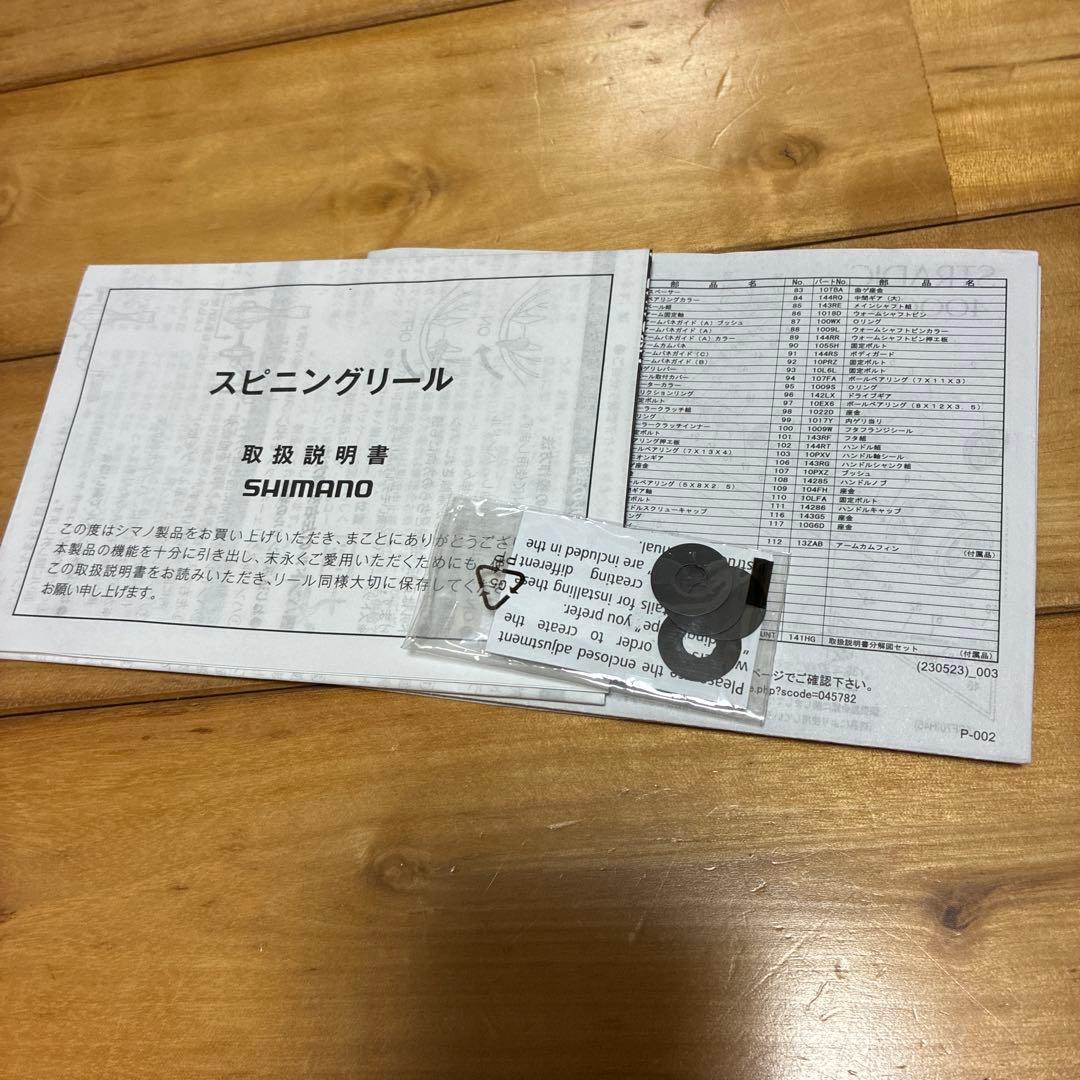 スピニングリール
取扱説明書
SHIMANO
この度はシマノ製品をお買い上げいただき、まことにありがとうござ
本製品の機能を十分に引き出し、末永くご愛用いただくためにも
この取扱説明書をお読みいただき、リール同様大切に保存してく
お願い申し上げます。
STRADIC
部 品 名 No. パートNo. 部 品 名
スペーサー 83 10TBA 曲ゲ座金
アリングカラー 84 144RQ 中間ギア（大）
ール組 85 143RE メインシャフト組
ーム固定軸 86 1018D ウォームシャフトピン
ームバネガイド（A）ブッシュ 87 100WX Oリング
ームバネガイド（A） 88 1009L ウォームシャフトピンカラー
ームバネガイド（A）カラー 89 144RR ウォームシャフトピン押エ板
ームカムバネ 90 1055H 固定ボルト
ームバネガイド（C） 91 144RS ボディガード
ームバネガイド（B） 92 10PRZ 固定ボルト
ゲリレバー 93 10L6L 固定ボルト
ール取付カバー 94 107FA ボールベアリング（7X11X3）
ーターカラー 95 1009S Oリング
リクションリング 96 142LX ドライブギア
ボルト 97 10EX6 ボールベアリング（8X12X3.5）
ーラークラッチ組 98 1022D 座金
リング 99 1017Y 内ゲリ当り
ーラークラッチインナー 100 1009W フタフランジシール
定ボルト 101 143RF フタ組
アリング押エ板 102 144RT ハンドル組
ールベアリング（7X13X4） 103 10PXV ハンドル軸シール
ニオンギア 106 143RG ハンドルシャンク組
座金 107 10PXZ ブッシュ
108 14285 ハンドルノブ
ールベアリング（5X8X2.5） 109 104FH 座金
ギア軸 110 10LFA 固定ボルト
ボルト 111 14286 ハンドルキャップ
ドルスクリューキャップ 116 143G5 座金
ング 117 10G6D 座金
112 13ZAB アームカムフィン （付属品）
UNT 141HG 取扱説明書分解図セット （付属品）
(230523)_003
ページでご確認下さい。
.php?scode=045782
P-002
the enclosed adjustment
order to create the
pe" you prefer.
tails for installing these
creating different
are included in the
nual.